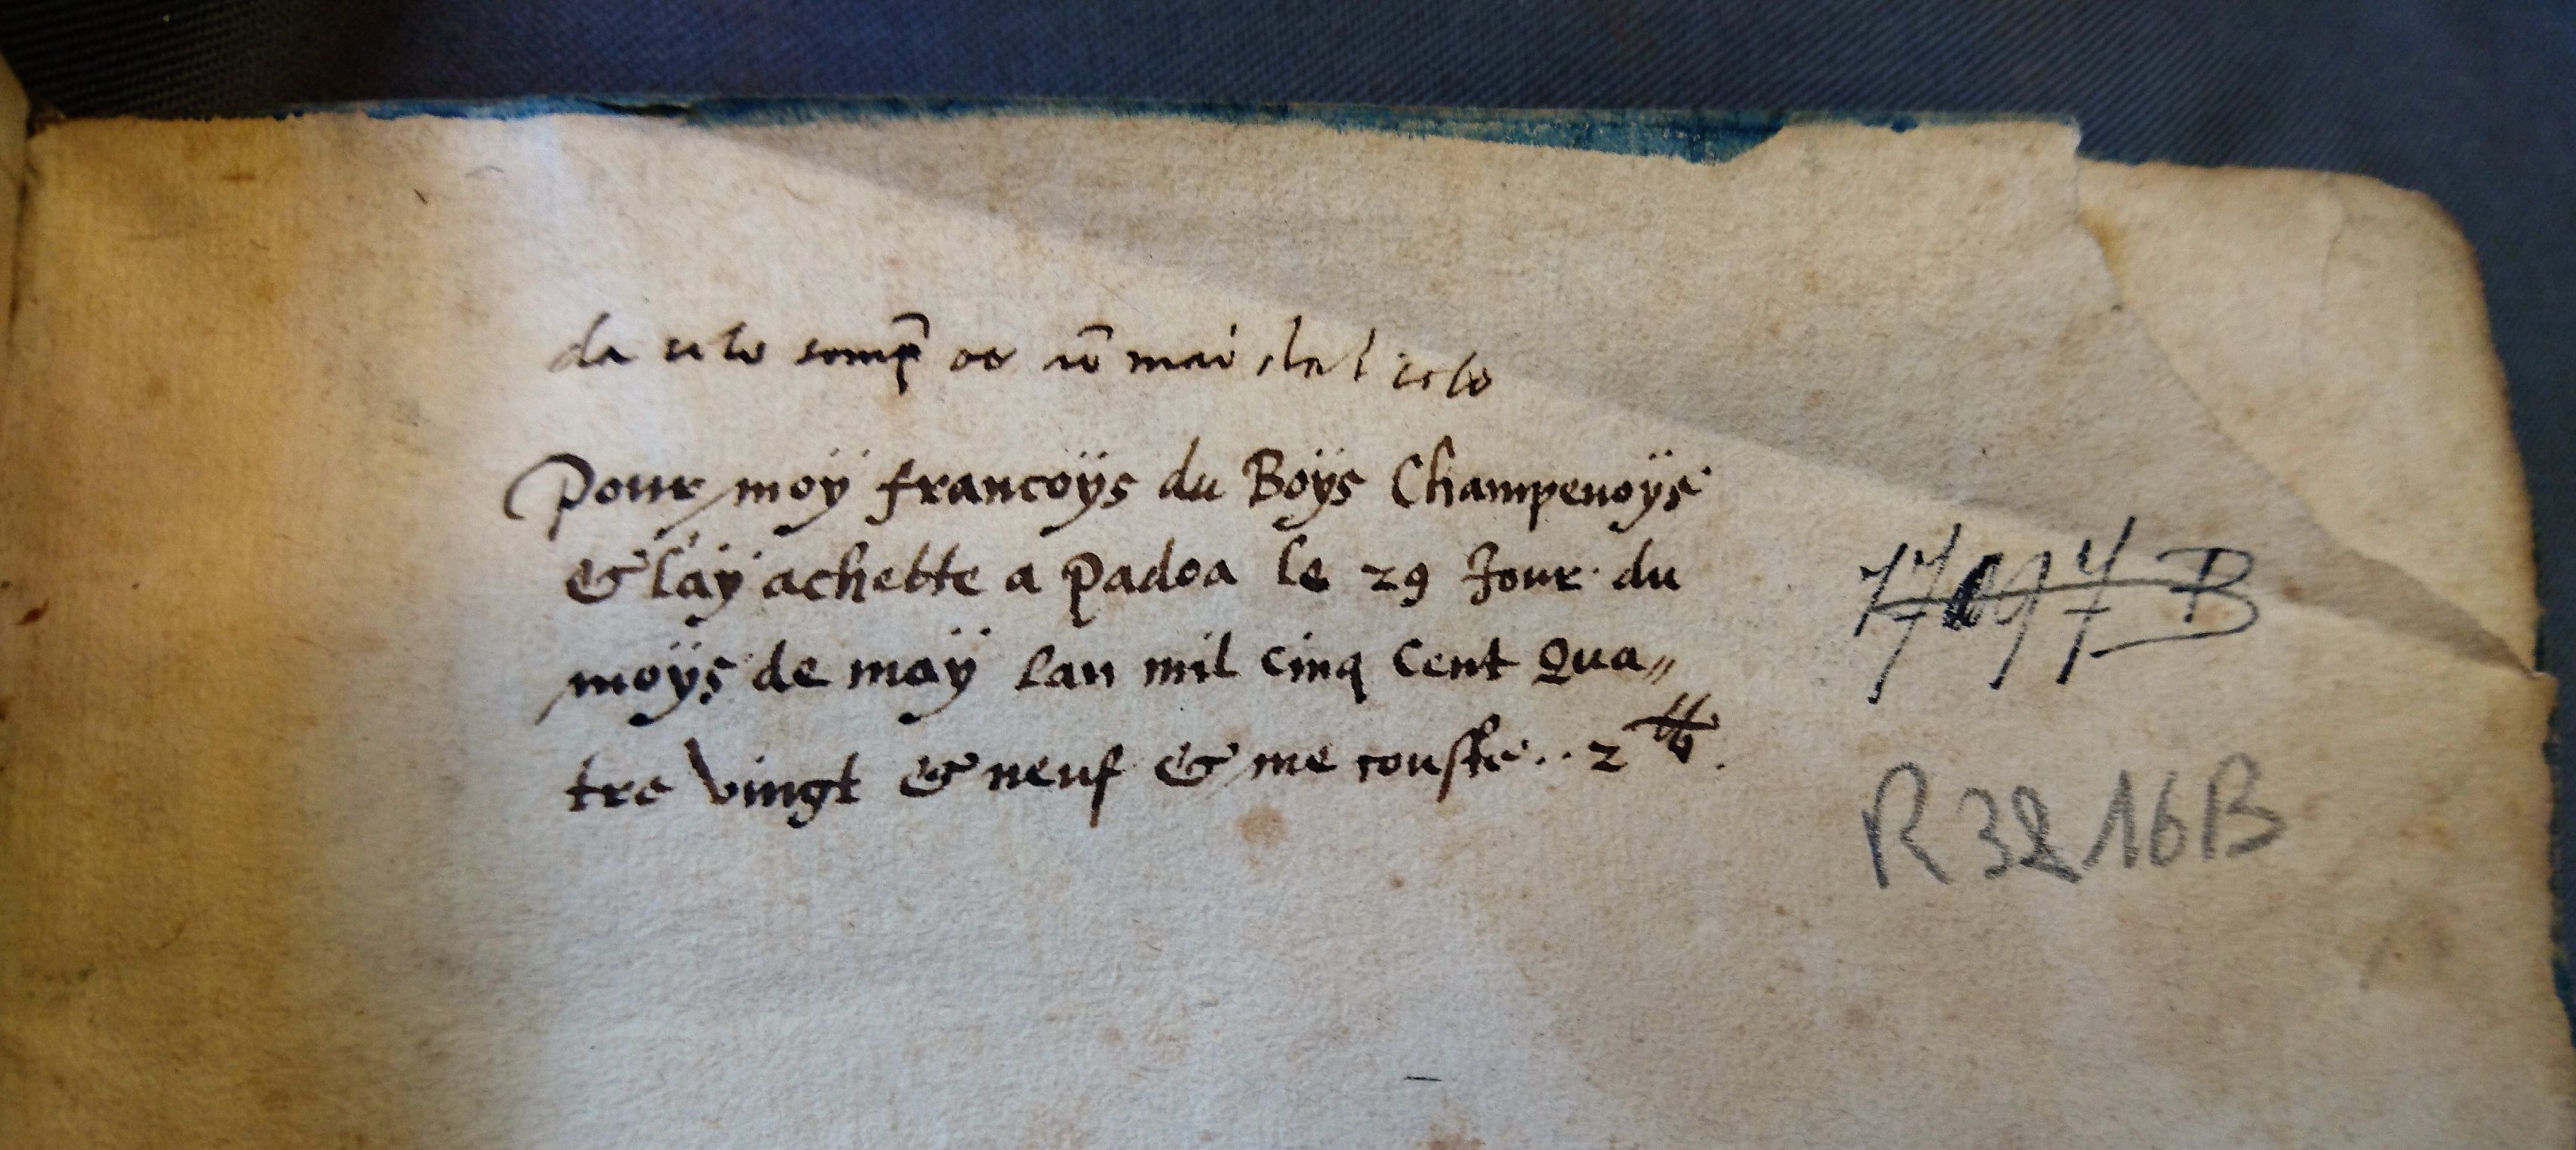 da
mai
Pour moÿ francoÿs du Boÿs Champenoÿs
& laÿ achebte a padoa le 29 Jour du
moÿs de maÿ lan mil cinq Cent Qua〃
tre vingt & neuf & me couste .. 2 ₶.
R 32 16 B